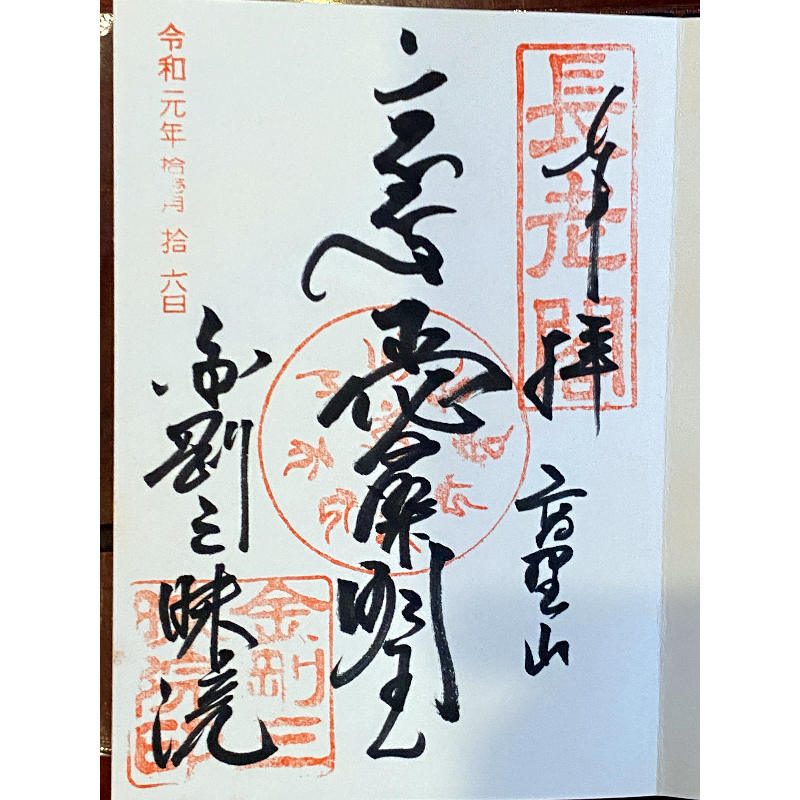 長老閣
奉拝
高野山
愛染明王
金剛三昧院
金剛三昧院印
令和元年拾壱月拾六日